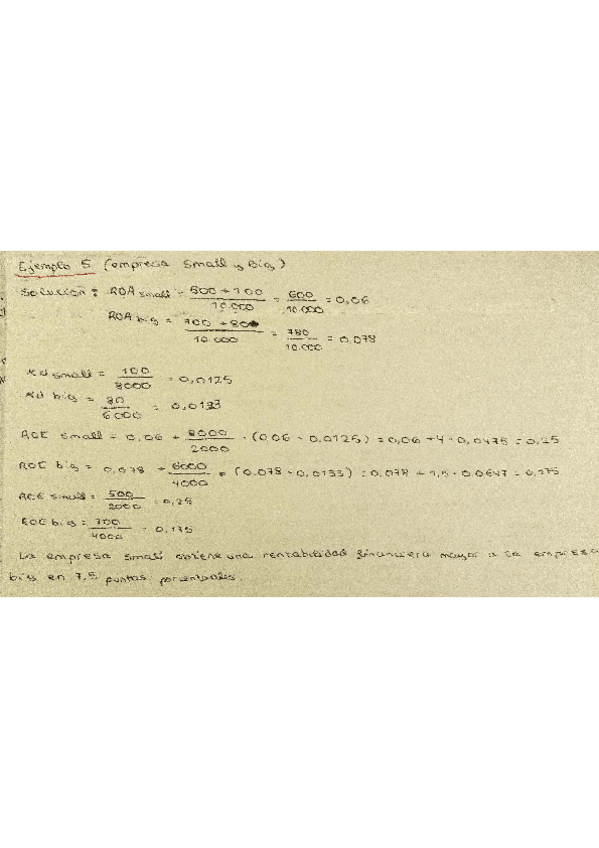 Ejemplo 5 (empresa Small y Big)
Solución: ROA small = 500 + 100 / 10.000 = 600 / 10.000 = 0,06
ROA big = 700 + 80 / 10.000 = 780 / 10.000 = 0,078
Kd small = 100 / 8000 = 0,0125
Kd big = 80 / 6000 = 0,0133
ROE small = 0,06 + 8000 / 2000 · (0,06 - 0,0125) = 0,06 + 4 · 0,0475 = 0,25
ROE big = 0,078 + 6000 / 4000 · (0,078 - 0,0133) = 0,078 + 1,5 · 0,0647 = 0,175
ROE small = 500 / 2000 = 0,25
ROE big = 700 / 4000 = 0,175
La empresa Small obtiene una rentabilidad financiera mayor a la empresa
big en 7,5 puntos porcentuales.